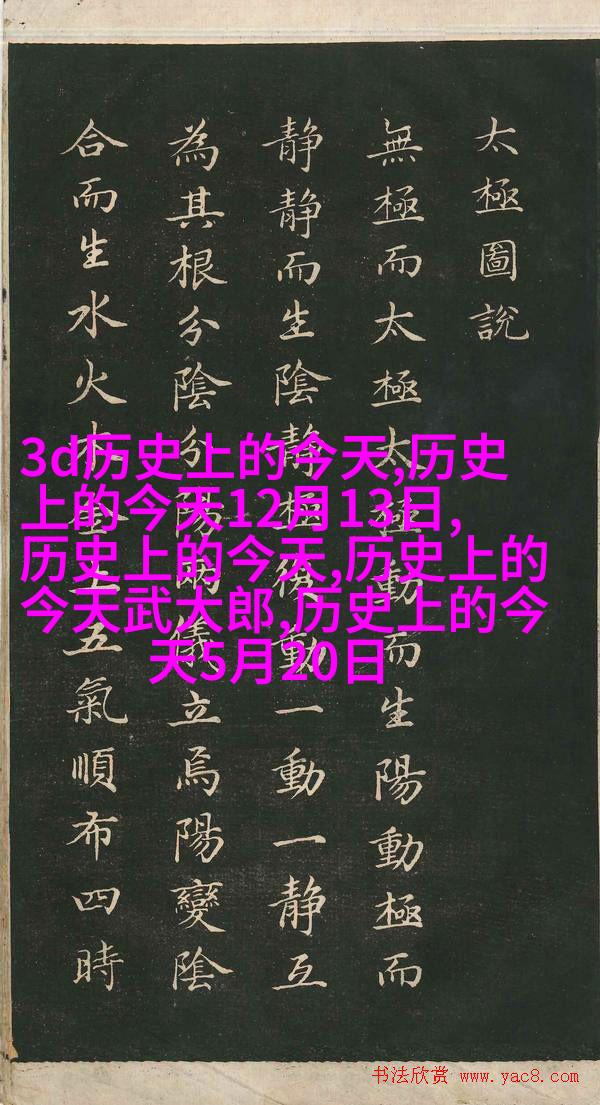 太極圖說
無極而太極太極動而生陽動極而
静静而生陰静極復動一動一静互
為其根分陰分陽兩儀立焉陽變陰
合而生水火木金土五氣順布四時
3d历史上的今天,历史
上的今天12月13日,
历史上的今天,历史上的
今天武大郎,历史上的今
天5月20日
书法欣赏 www.yac8.com